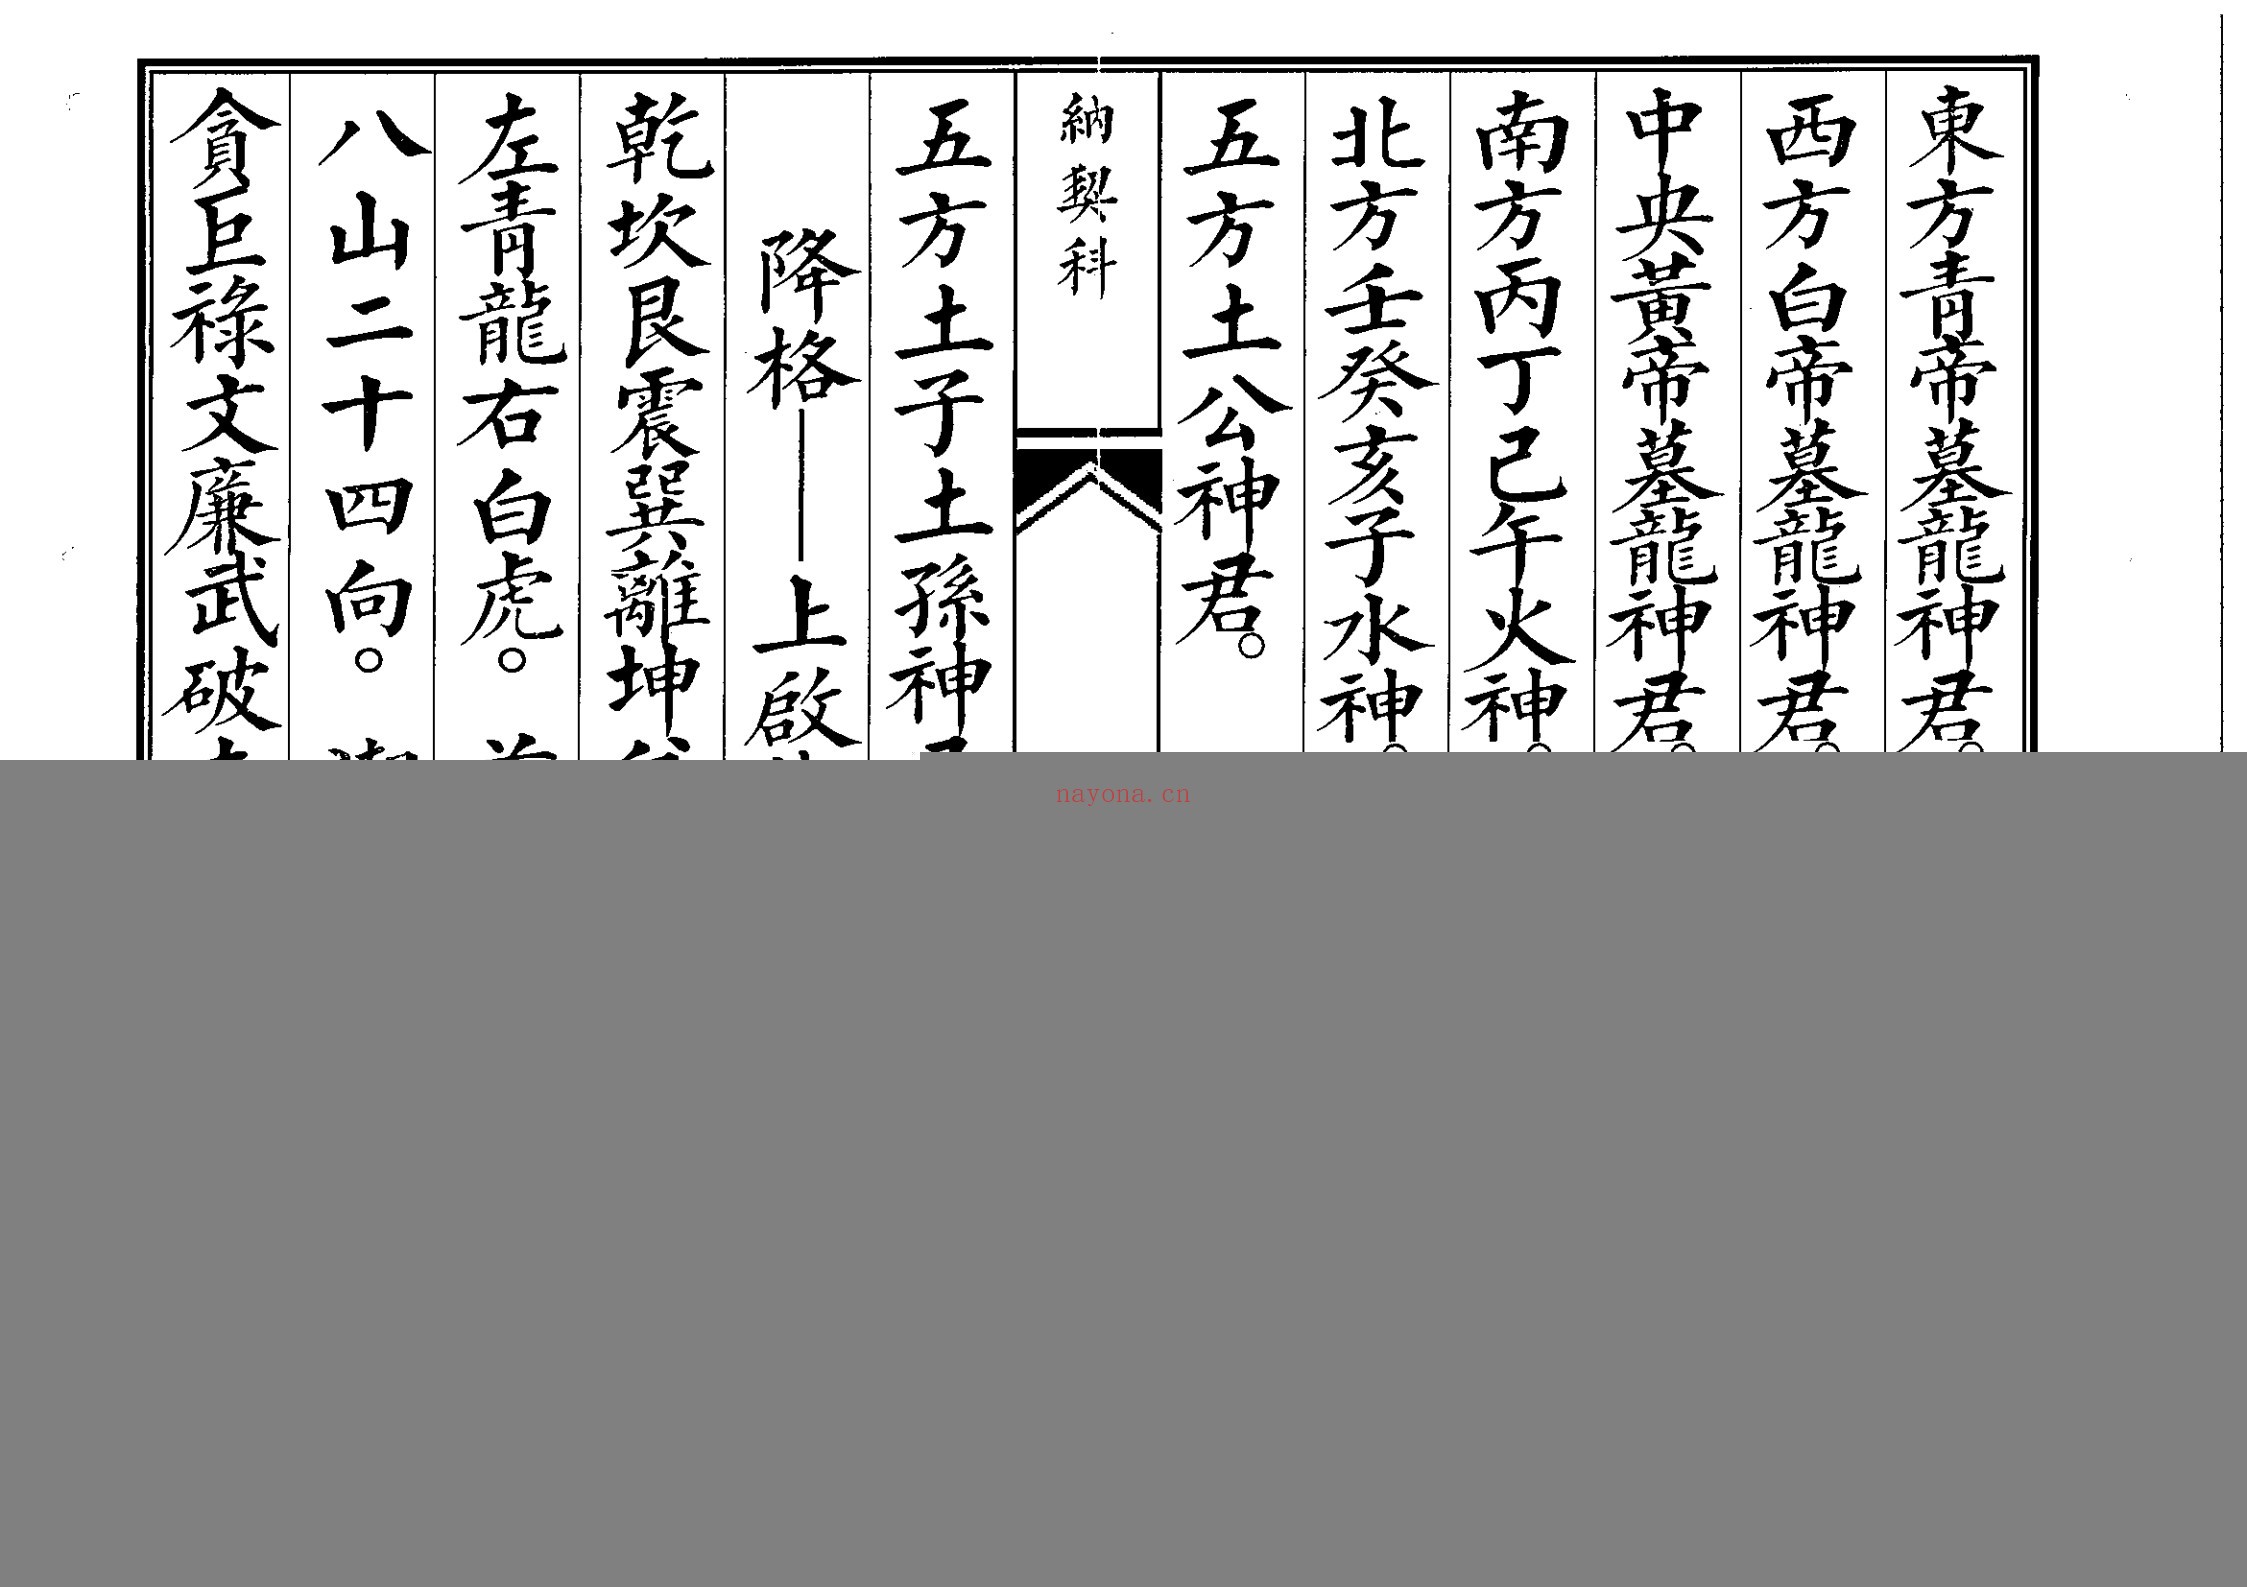 東方青帝墓龍神君。
西方白帝墓龍神君。
中央黃帝墓龍神君。
南方丙丁己午火神。
北方壬癸亥子水神。
五方土公神君。
納契科
五方土子土孫神
降格——上啟
乾坎艮震巽離坤
左青龍右白虎。
八山二十四向。
貪巨祿文廉武破
nayona.cn